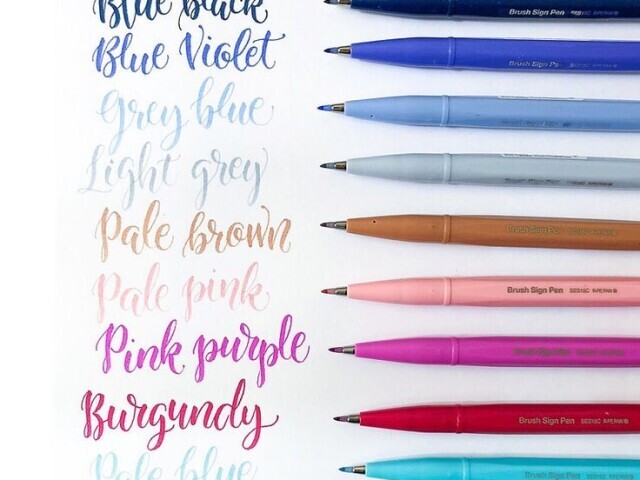 Blue black
Brush Sign Pen
Blue Violet
Brush Sign Pen
Grey blue
Light grey
Pale brown
Brush Sign Pen
Pale pink
Brush Sign Pen SES15C
Pink purple
Burgundy
Brush Sign Pen SES15C
Pale blue
Brush Sign Pen